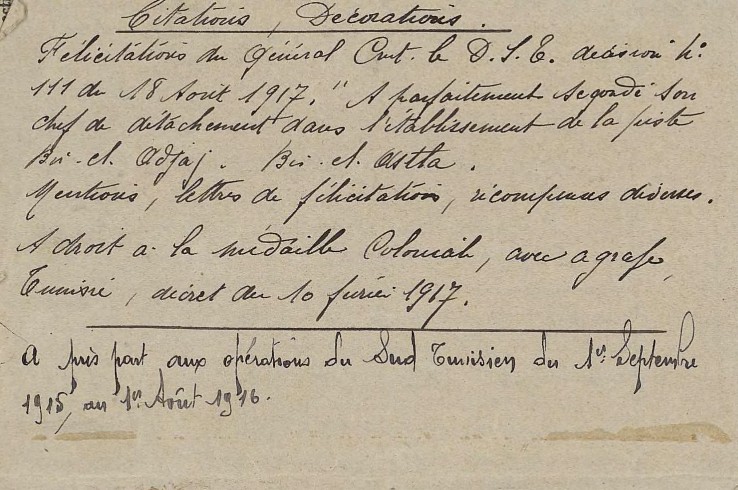 Citations, Décorations.
Félicitations du Général Cmt. le D. S. E. décision No
111 du 18 Août 1917. " A parfaitement secondé son
chef de détachement dans l'établissement de la piste
Bir. el. Adjaj. Bir. el. Astta.
Mentions, lettres de félicitations, récompenses diverses.
A droit a la médaille Coloniale, avec agrafe,
Tunisie, décret du 10 février 1917.
A pris part aux opérations du Sud Tunisien du 1er Septembre
1915, au 1er Août 1916.